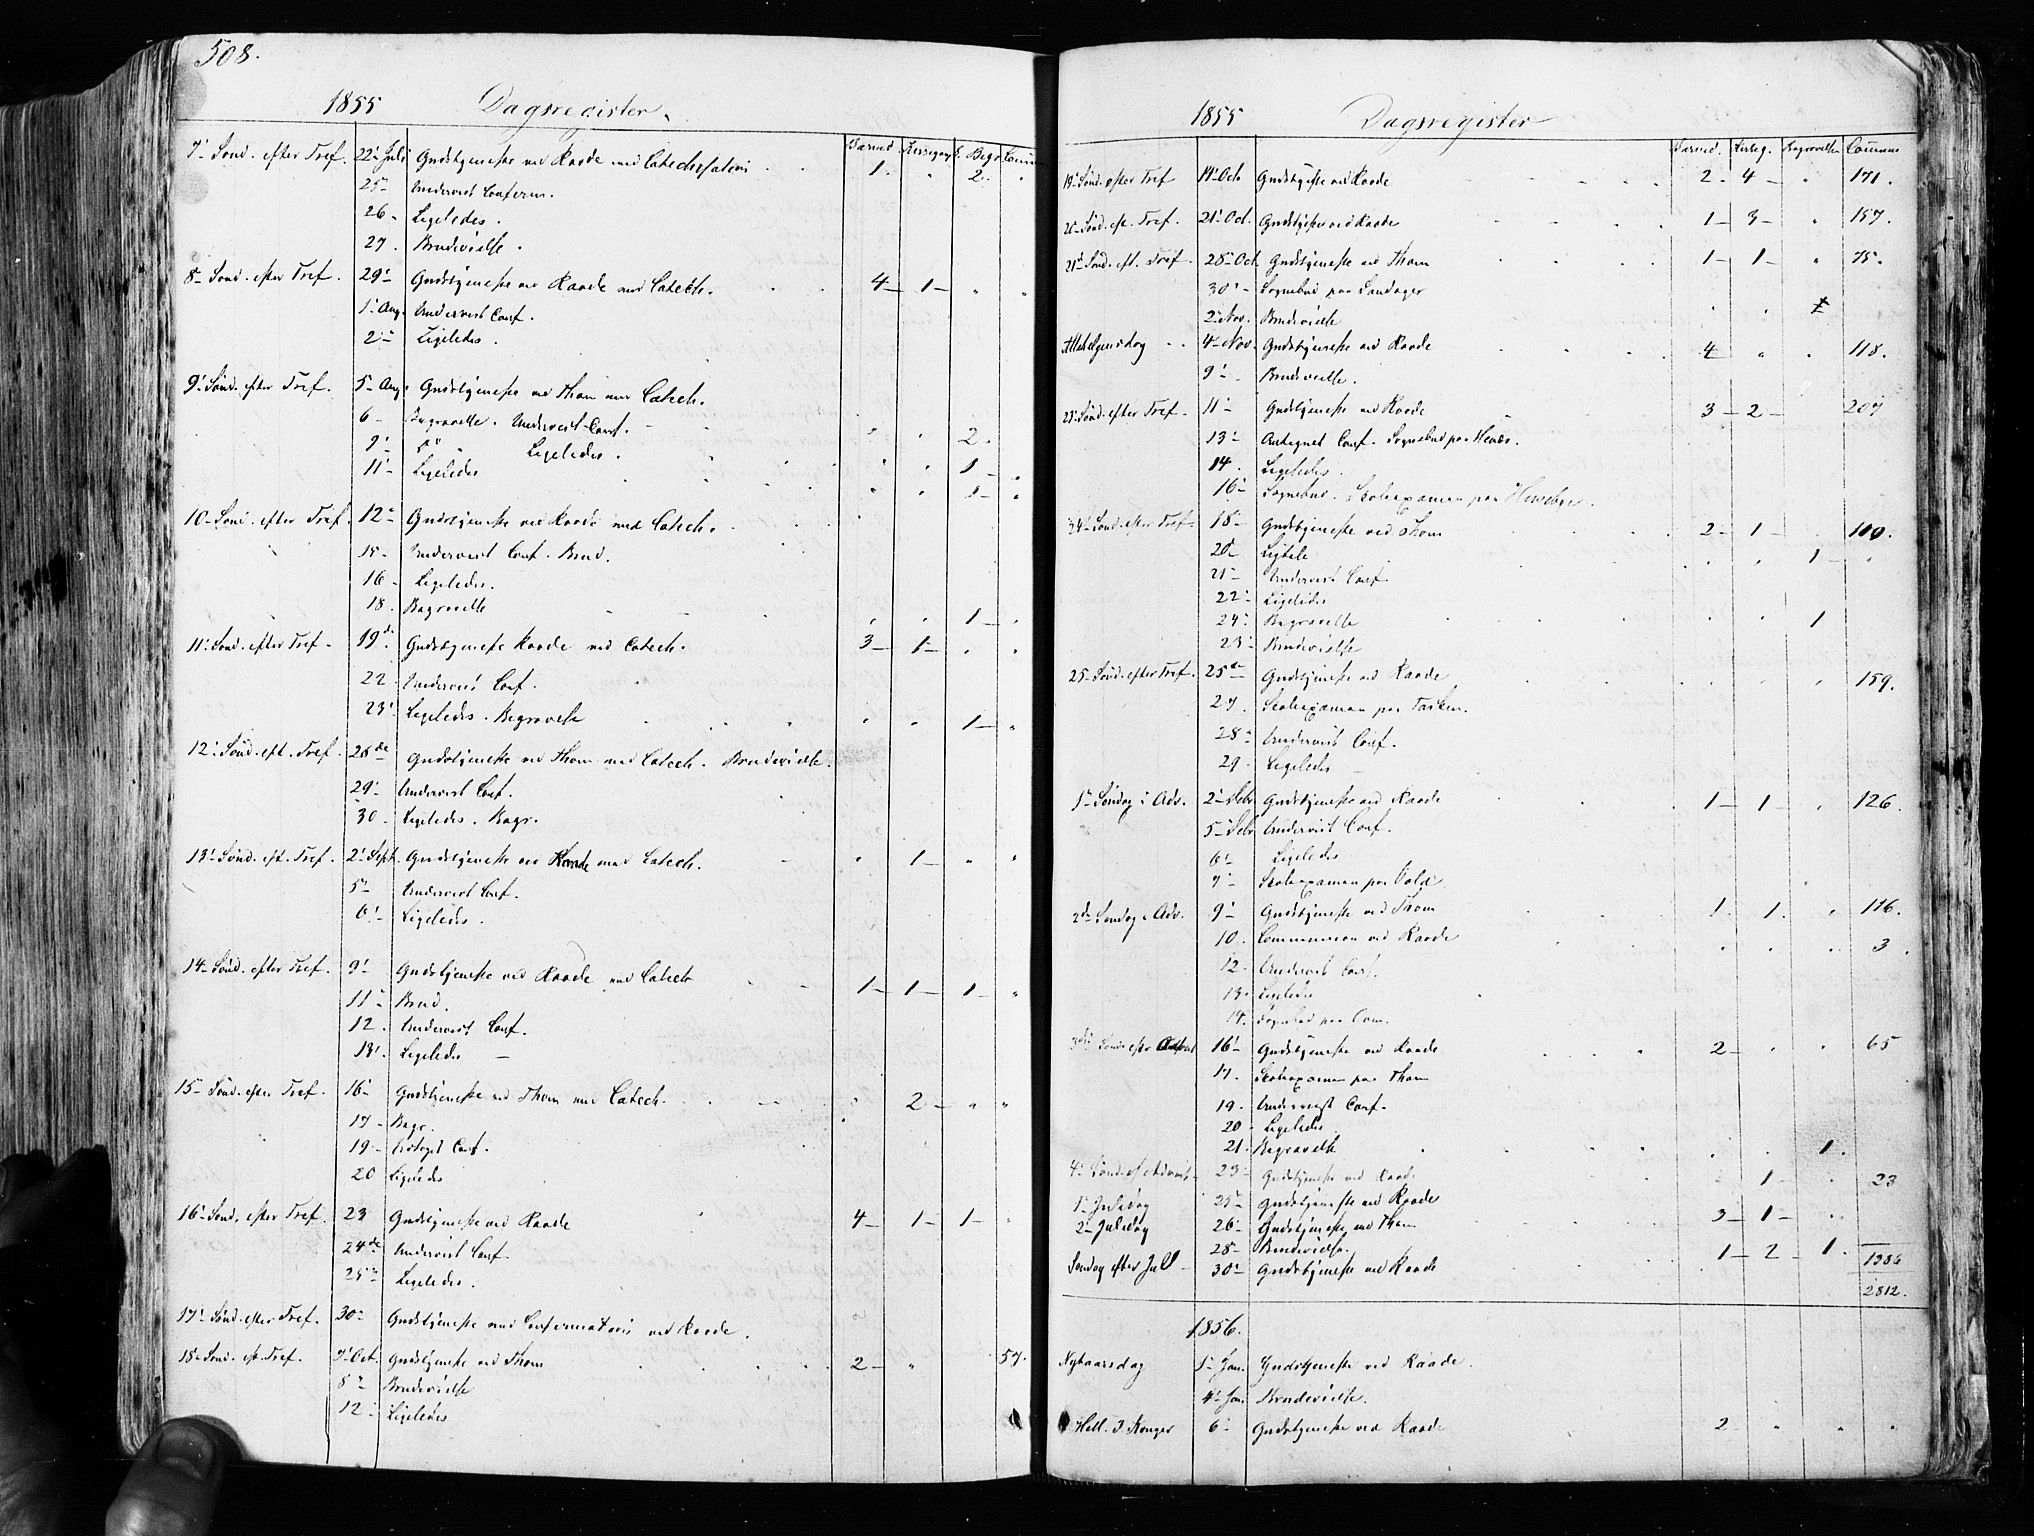 508.
1855 Dagsregister.
Barned. Kirkegang. Begr. Comun
7' Sönd. efter Tref. 22' Juli Gudstjeneste ved Raade med Catechisation 1. " 2. "
25- Undervist Conferm.
26- Ligeledes.
27. Brudevielse.
8- Sönd. efter Tref. 29' Gudstjeneste ved Raade med Catech. 4- 1- " "
1' Aug. Undervist Conf.
2- Ligeledes.
9' Sönd. efter Tref. 5- Aug. Gudstjeneste ved Thom med Catech.
6- Begravelse. Undervist Conf. " " 2.
9'- Ligeledes. " " 1- "
11'- Ligeledes
10- Sönd. efter Tref. 12- Gudstjeneste ved Raade med Catech.
15- Undervist Conf. Brud.
16- Ligeledes.
18. Begravelse 1-
11' Sönd. efter Tref. 19de Gudstjeneste Raade med Catech. 3- 1- " "
22- Undervist Conf.
23' Ligeledes. Begravelse " " 1- "
12' Sönd. eft. Tref. 26de Gudstjeneste ved Thom med Catech. Brudevielse.
29' Undervist Conf.
30- Ligeledes. Begr.
13' Sönd. eft. Tref. 2' Sept. Gudstjeneste ved Raade med Catech. " 1- " "
5- Undervist Conf.
6'- Ligeledes.
14- Sönd. efter Tref. 9' Gudstjeneste ved Raade med Catech 1- 1- 1- "
11- Brud.
12. Undervist Conf.
13'. Ligeledes -
15- Sönd. efter Tref. 16- Gudstjeneste ved Thom med Catech. " 2- " "
17- Begr.
19- Conf.
20 Ligeledes
16' Sönd. efter Tref. 23 Gudstjeneste ved Raade 4- 1- 1- "
24de Undervist Conf.
25- Ligeledes.
17' Sönd. efter Tref. 30- Gudstjeneste med Confermation ved Raade.
18- Sönd. eft. Tref. 7' Oct. Gudstjeneste ved Thom 2- " 57.
8- Brudevielse
12- Ligeledes
1855 Dagsregister
Barned. Kirkeg. Begravelse Comun
19' Sönd. efter Tref 14' Oct Gudstjeneste ved Raade 2- 4- " 171.
20- Sönd. eft. Tref. 21' Oct. Gudstjeneste ved Raade 1- 3- " 157.
21' Sönd. eft. Tref. 28' Oct Gudstjeneste ved Thom 1- 1- " 75.
30'- Sognebud paa
2- Nov. Brudevielse
Allehelgensdag 4' Nov. Gudstjeneste ved Raade 4- " " 118.
9'- Brudevielse.
23' Sönd. efter Tref. 11'- Gudstjeneste ved Raade 3- 2- 207
13'- Conf. Sognebud paa
14. Ligeledes.
16'- Sognebud. Skoleexamen paa Huseby.
24' Sönd. efter Tref. 18- Gudstjeneste ved Thom 2- 1- 110.
20- 1-
21- Undervist Conf
22- Ligeledes
24- Begravelse 1
23- Brudevielse
25- Sönd. efter Tref. 25de Gudstjeneste ved Raade 159.
27. Skoleexamen paa
28- Undervist Conf.
29. Ligeledes -
1- Söndag i Adv. 2' Debr Gudstjeneste ved Raade 1- 1- " 126.
5- Debr Undervist Conf.
6'- Ligeledes
7- Skoleexamen paa Vold
2de Söndag i Adv. 9'- Gudstjeneste ved Thom 1. 1. " 116.
10. Communion ved Raade " " " 3.
12. Undervist Conf.
13. Ligeledes
14. Sognebud paa
16'- Gudstjeneste ved Raade 2- " " 65
17. Skoleexamen paa Thom
19. Undervist Conf.
20- Ligeledes
21. Begravelse 1.
4' Sönd. ef. Advent 23- Gudstjeneste ved Raade 1- 23
1' Juledag 25- Gudstjeneste ved Raade
2' Juledag 26- Gudstjeneste ved Thom 3- 1-
28- Brudevielse.
Söndag efter Juul 30' Gudstjeneste ved Raade 1- 2- 1. 1386
2812.
1856.
Nytaarsdag 1- Jan. Gudstjeneste ved Raade.
4' Jan. Brudevielse.
Hell. 3 Konger 6' Gudstjeneste ved Raade 2- " " "